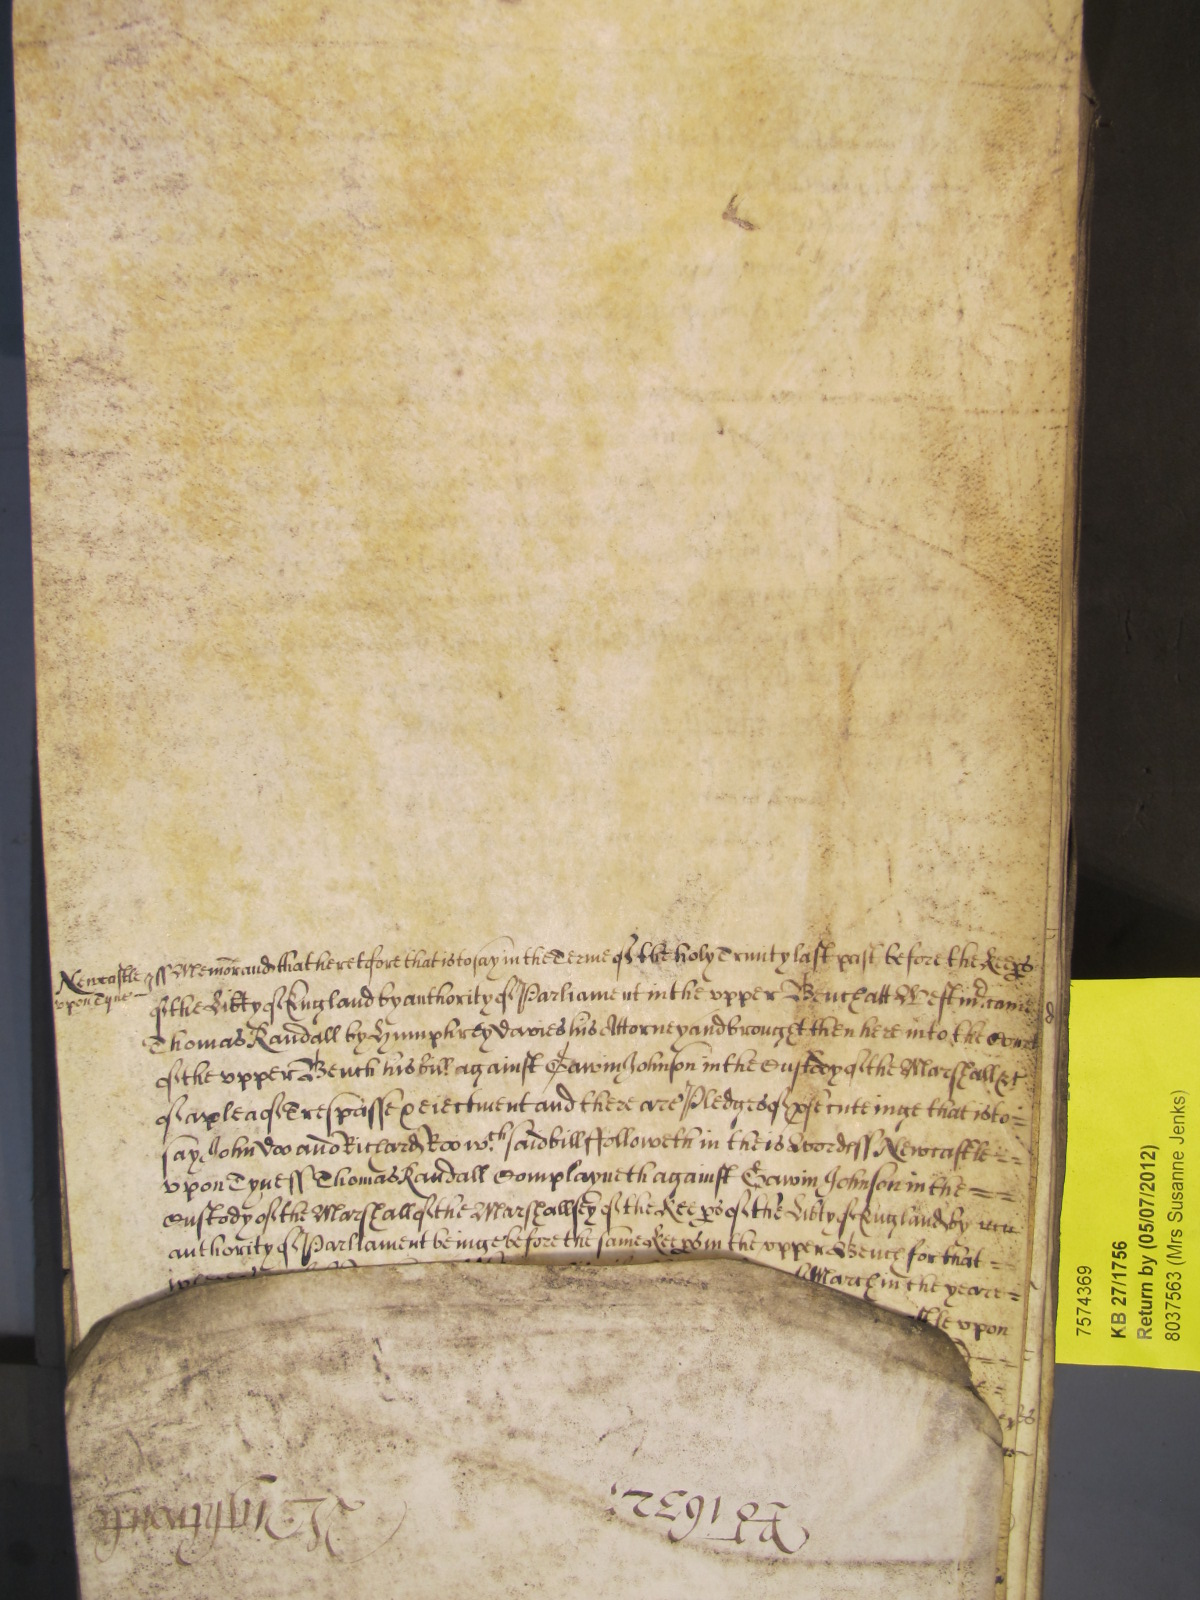 Newcastle
vpon Tyne
ss Memorand that heretofore that is to say in the Terme of the holy Trinity last past before the Keeps
of the Libty of England by authority of Parliament in the vpper Bench att Westm came
Thomas Randall by Humphrey Davies his Attorney and brought then here into the Court
of the vpper Bench his bill against Gawin Johnson in the Custody of the Marshall &c
of a plea of Trespasse & eiectment and there are Pledges of psecuteinge that is to =
say John Doo and Richard Roo wch said bill ffolloweth in theis Words ss Newcastle =
vpon Tyne ss Thomas Randall Complayneth against Gawin Johnson in the =
Custody of the Marshall of the Marshallsey of the Keeps of the Libty of England by
authority of Parliament beinge before the same Keeps in the vpper Bench for that =
March in the yeare =
vpon
Ro 1632
7574369
KB 27/1756
Return by (05/07/2012)
8037563 (Mrs Susanne Jenks)